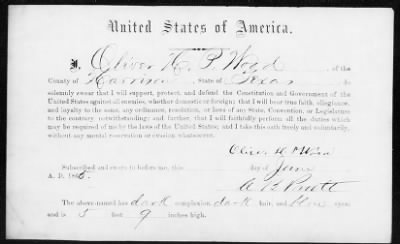 United States of America.
I, Oliver H. P. Wood of the
County of Harrison, State of Texas do
solemnly swear that I will support, protect, and defend the Constitution and Government of the
United States against all enemies, whether domestic or foreign; that I will bear true faith, allegiance,
and loyalty to the same, any ordinance, resolution, or laws of any State, Convention, or Legislature
to the contrary notwithstanding; and further, that I will faithfully perform all the duties which
may be required of me by the laws of the United States; and I take this oath freely and voluntarily,
without any mental reservation or evasion whatsoever.
Oliver H P Wood
Subscribed and sworn to before me, this day of June
A. D. 1865.
The above-named has dark complexion, dark hair, and blue eyes
and is 5 feet 9 inches high.